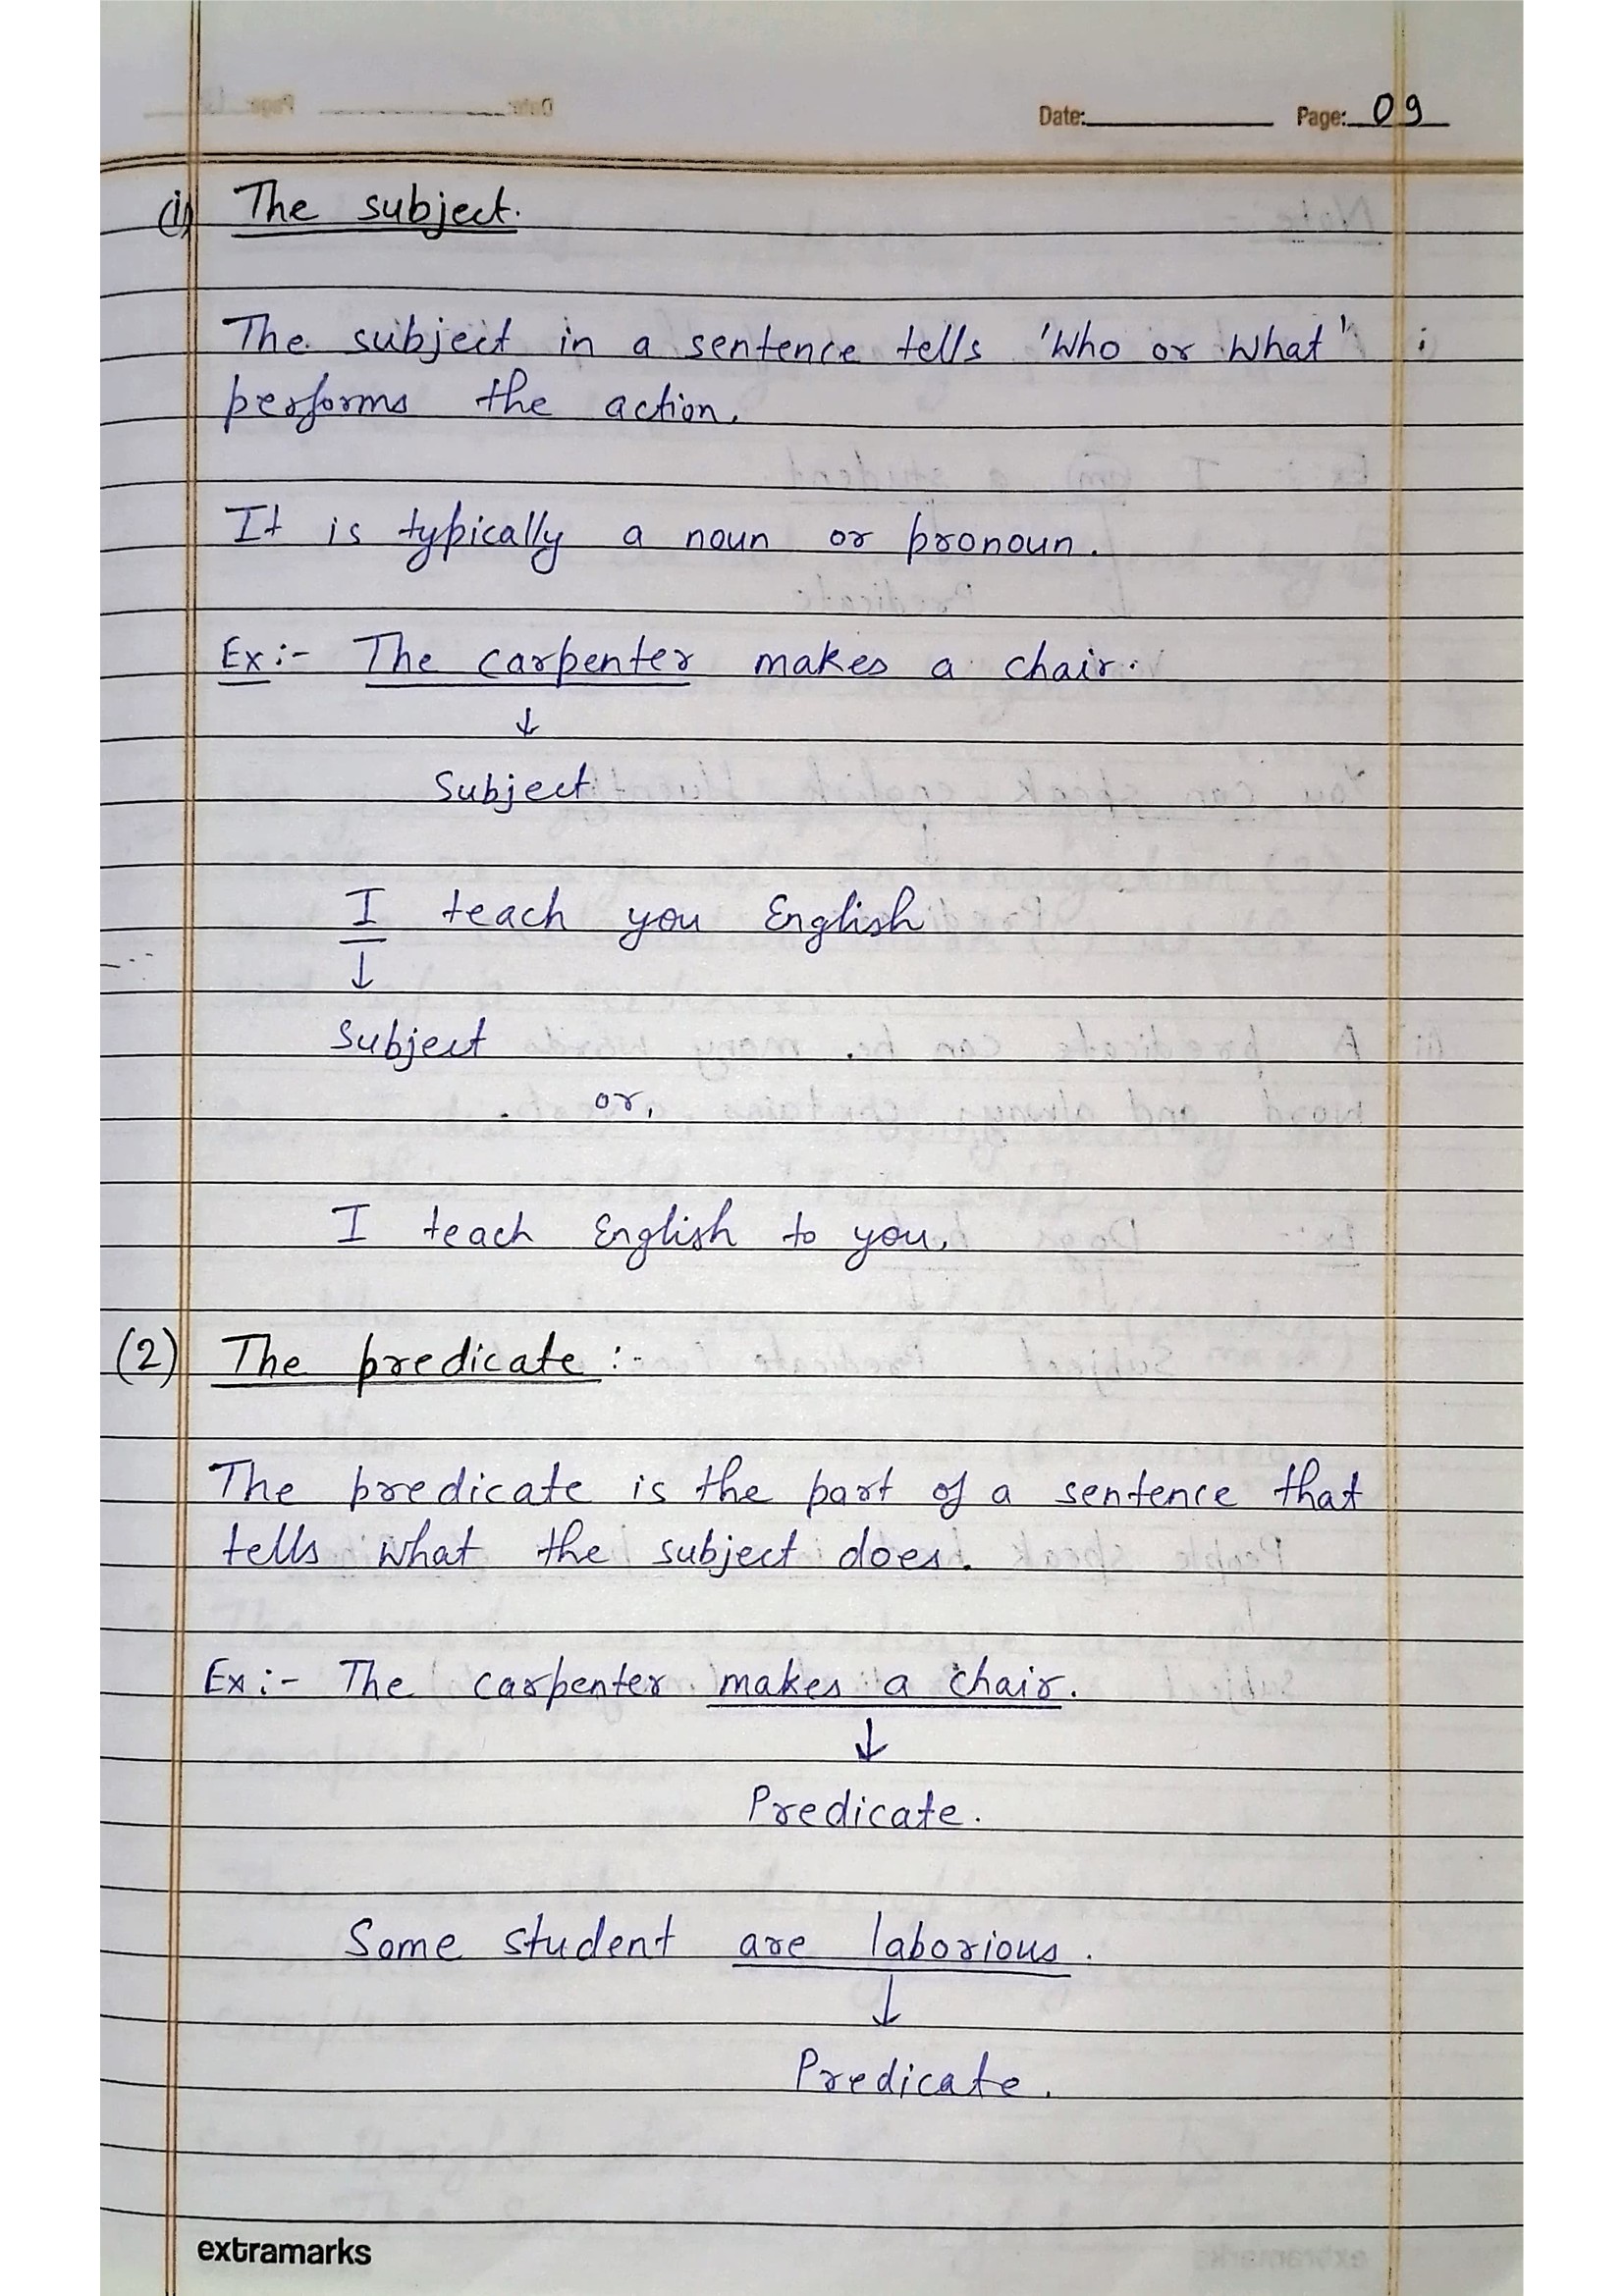 Date: Page: 09
(1) The subject.
The subject in a sentence tells 'Who or What'
performs the action.
It is typically a noun or pronoun.
Ex:- The carpenter makes a chair.
↓
Subject
I teach you English
↓
Subject
or,
I teach English to you.
(2) The predicate :-
The predicate is the part of a sentence that
tells what the subject does.
Ex:- The carpenter makes a chair.
↓
Predicate.
Some student are laborious.
↓
Predicate.
extramarks